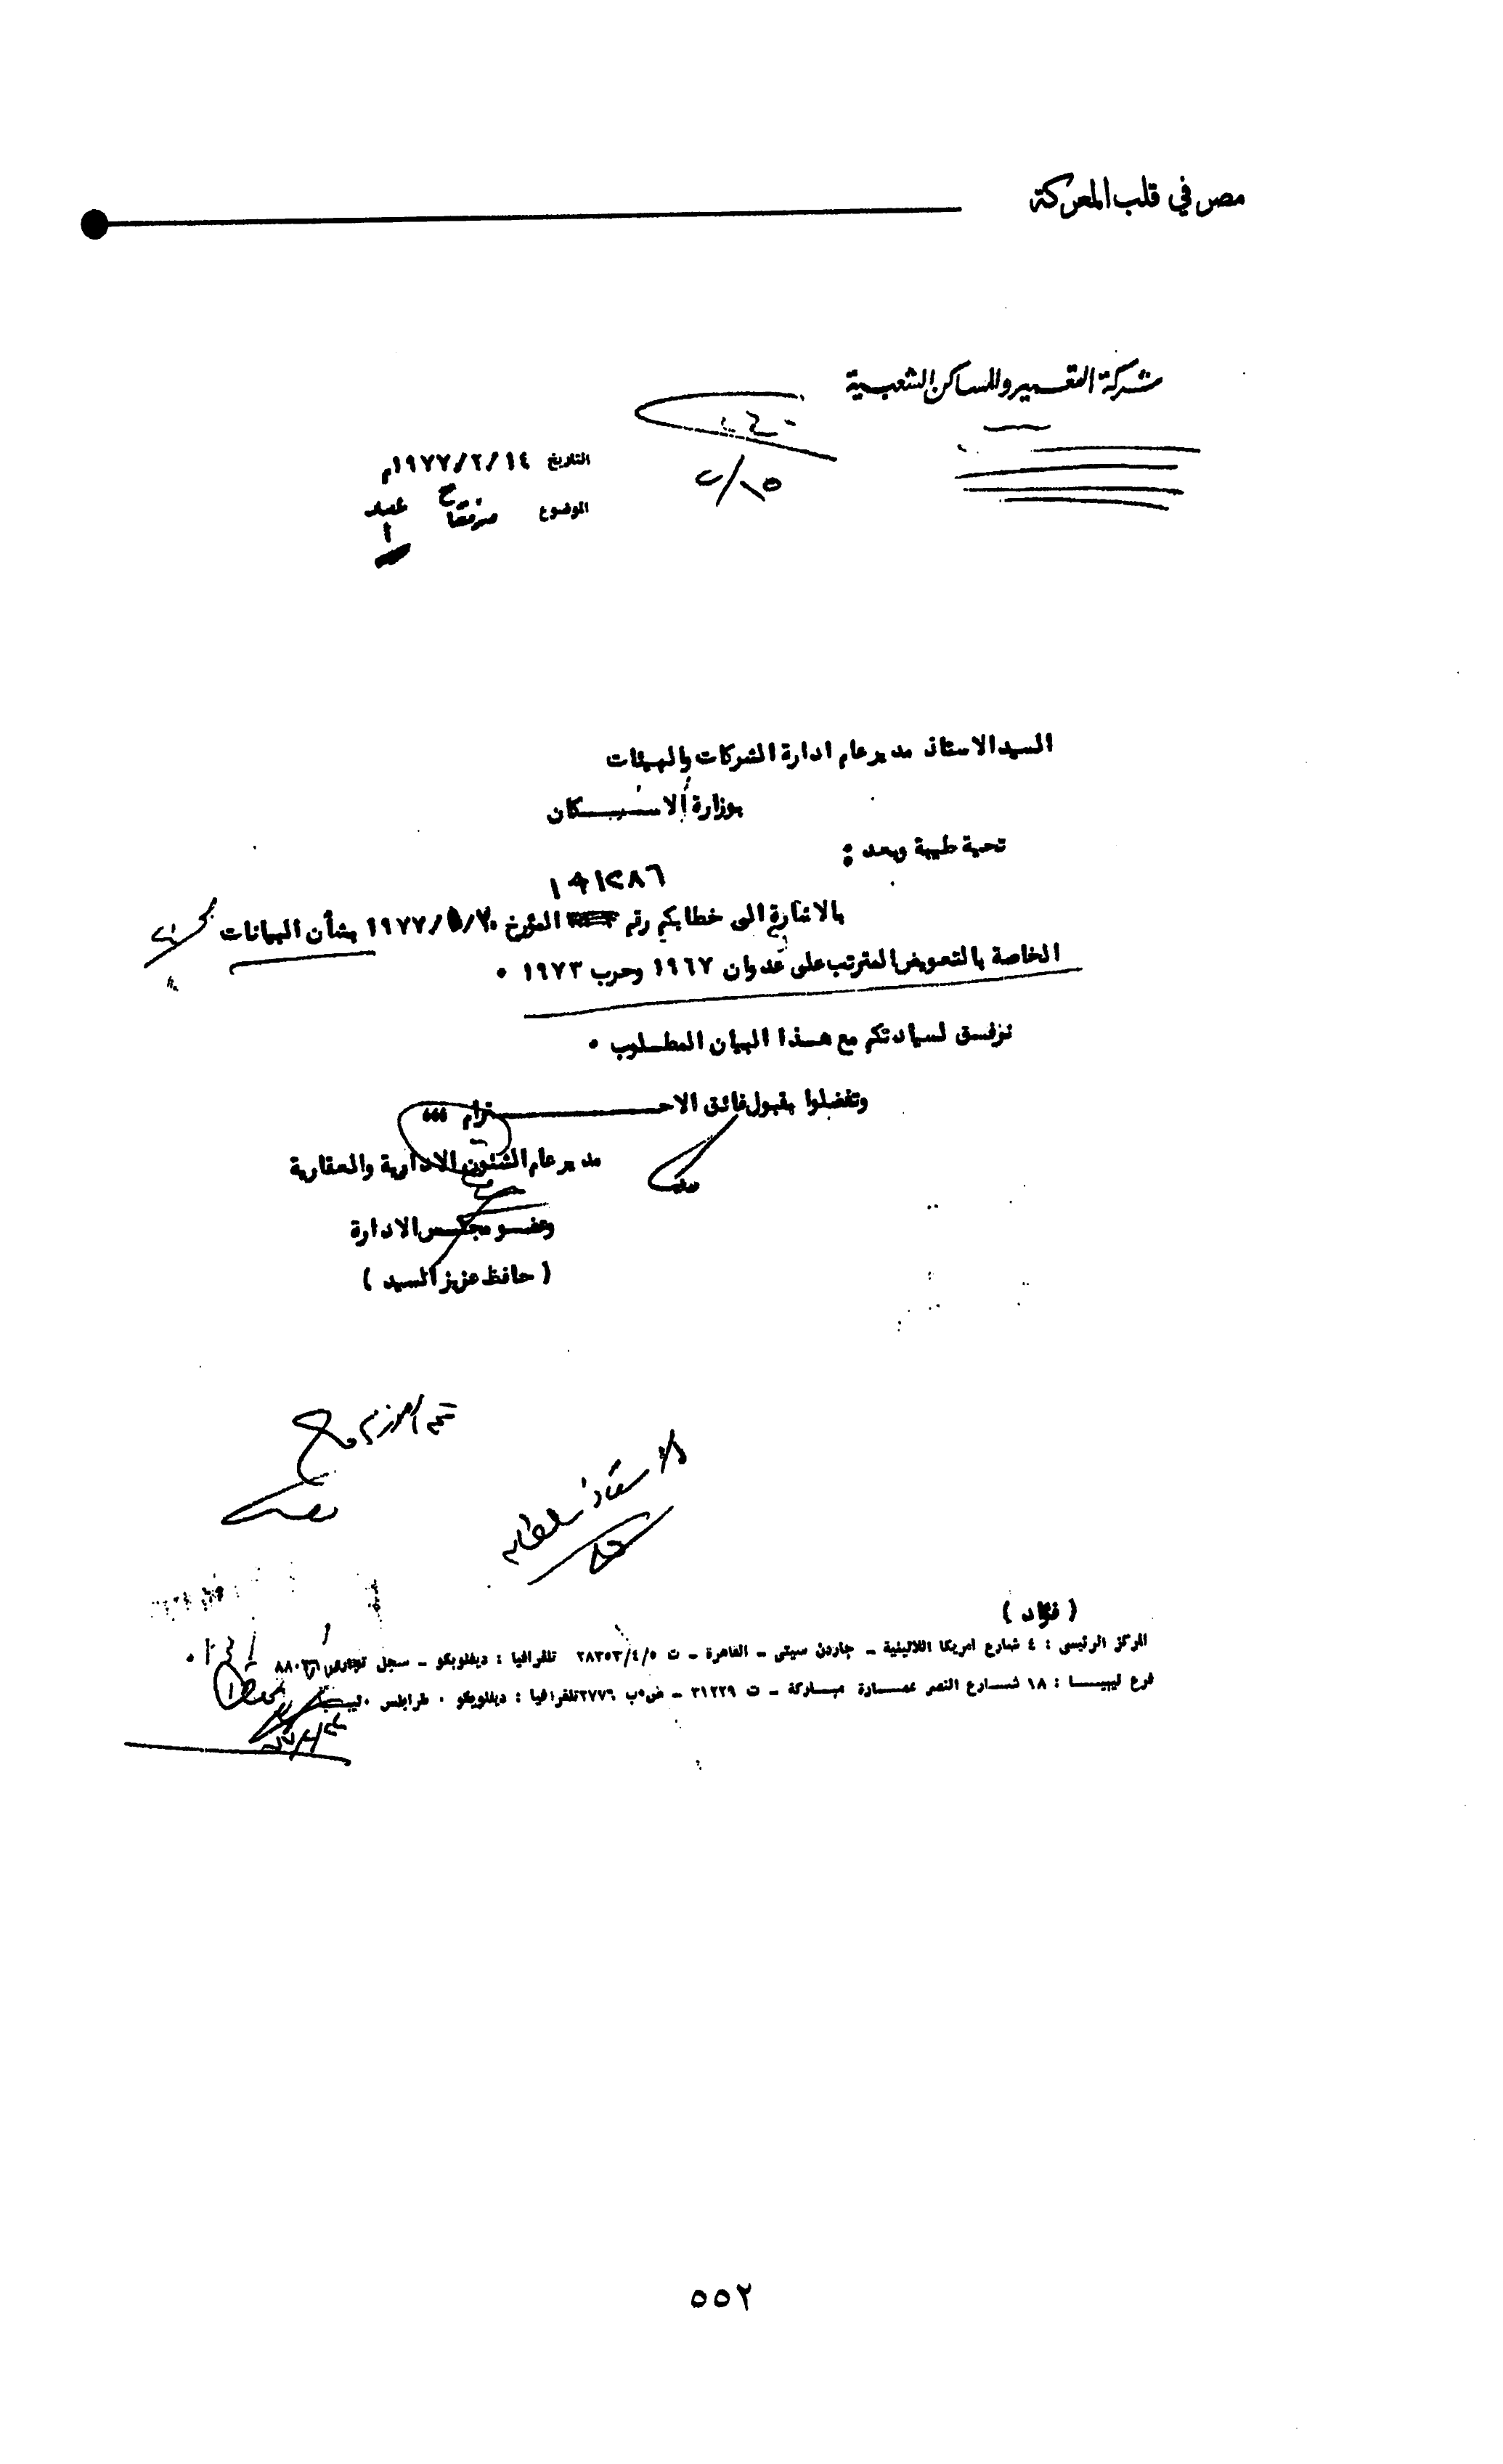 مصر في قلب المعركة
شركة التعمير والمساكن الشعبية
التاريخ ١٩٧٧/٢/١٤م
الموضوع
١٥/٢
السيد الاستاذ مدير عام ادارة الشركات والهيئات
بوزارة الاســكان
تحية طيبة وبعد :
بالاشارة الى خطابكم رقم المؤرخ ١٩٧٧/ بشأن البيانات
الخاصة بالتعويض المترتب على عدوان ١٩٦٧ وحرب ١٩٧٣ ٠
نرفــق لسيادتكم مع هــذا البيان المطــلوب ٠
وتفضلوا بقبول فائق الاحــــــترام ،،،
مدير عام الشئون الادارية والعقارية
وعضــو مجلــس الادارة
( حافظ عزيز السيد )
الاستاذ
( فؤاد )
المركز الرئيسى : ٤ شارع امريكا اللاتينية ــ جاردن سيتى ــ القاهرة ــ ت ٢٨٣٥٣/٤/٥ تلغرافيا : ديفلوبكو ــ سجل تجارى
فرع ليبيــــا : ١٨ شــارع النصر عمــارة مبــاركة ــ ت ٣١٢٢٩ ــ ص٠ب ٢٧٧٦ تلغرافيا : ديفلوبكو ٠ طرابلس
٥٥٢